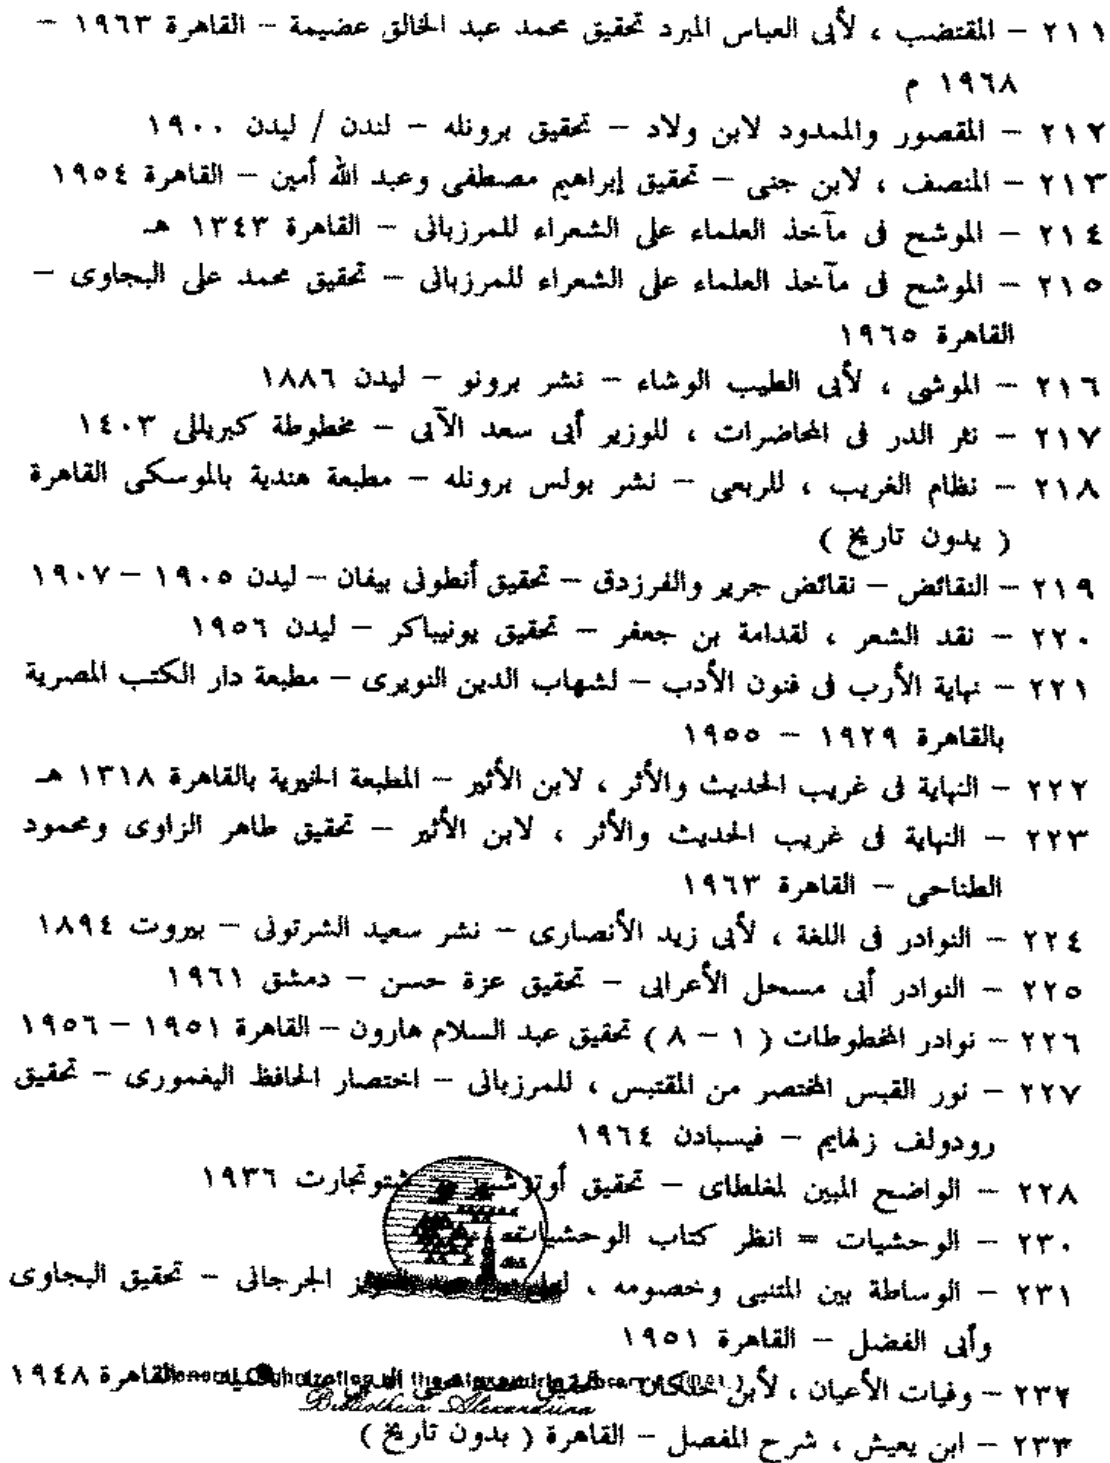 ٢١١ – المقتضب ، لأبى العباس المبرد تحقيق محمد عبد الخالق عضيمة – القاهرة ١٩٦٣ –
١٩٦٨ م
٢١٢ – المقصور والممدود لابن ولاد – تحقيق برونله – لندن / ليدن ١٩٠٠
٢١٣ – المنصف ، لابن جنى – تحقيق إبراهيم مصطفى وعبد الله أمين – القاهرة ١٩٥٤
٢١٤ – الموشح فى مآخذ العلماء على الشعراء للمرزبانى – القاهرة ١٣٤٣ هـ
٢١٥ – الموشح فى مآخذ العلماء على الشعراء للمرزبانى – تحقيق محمد على البجاوى –
القاهرة ١٩٦٥
٢١٦ – الموشى ، لأبى الطيب الوشاء – نشر برونو – ليدن ١٨٨٦
٢١٧ – نثر الدر فى المحاضرات ، للوزير أبى سعد الآبى – مخطوطة كبريللى ١٤٠٣
٢١٨ – نظام الغريب ، للربعى – نشر بولس برونله – مطبعة هندية بالموسكى القاهرة
( بدون تاريخ )
٢١٩ – النقائض – نقائض جرير والفرزدق – تحقيق أنطونى بيفان – ليدن ١٩٠٥ – ١٩٠٧
٢٢٠ – نقد الشعر ، لقدامة بن جعفر – تحقيق يونيباكر – ليدن ١٩٥٦
٢٢١ – نهاية الأرب فى فنون الأدب – لشهاب الدين النويرى – مطبعة دار الكتب المصرية
بالقاهرة ١٩٢٩ – ١٩٥٥
٢٢٢ – النهاية فى غريب الحديث والأثر ، لابن الأثير – المطبعة الخيرية بالقاهرة ١٣١٨ هـ
٢٢٣ – النهاية فى غريب الحديث والأثر ، لابن الأثير – تحقيق طاهر الزاوى ومحمود
الطناحى – القاهرة ١٩٦٣
٢٢٤ – النوادر فى اللغة ، لأبى زيد الأنصارى – نشر سعيد الشرتونى – بيروت ١٨٩٤
٢٢٥ – النوادر أبى مسحل الأعرابى – تحقيق عزة حسن – دمشق ١٩٦١
٢٢٦ – نوادر المخطوطات ( ١ – ٨ ) تحقيق عبد السلام هارون – القاهرة ١٩٥١ – ١٩٥٦
٢٢٧ – نور القبس المختصر من المقتبس ، للمرزبانى – اختصار الحافظ اليغمورى – تحقيق
رودولف زلهايم – فيسبادن ١٩٦٤
٢٢٨ – الواضح المبين لمغلطاى – تحقيق ١٩٣٦
٢٣٠ – الوحشيات = انظر كتاب الوحشيات
٢٣١ – الوساطة بين المتنبى وخصومه ، الجرجانى – تحقيق البجاوى
وأبى الفضل – القاهرة ١٩٥١
٢٣٢ – وفيات الأعيان ، لابن خلكان – القاهرة ١٩٤٨
General Organization of the Alexandria Library
Bibliotheca Alexandrina
٢٣٣ – ابن يعيش ، شرح المفصل – القاهرة ( بدون تاريخ )